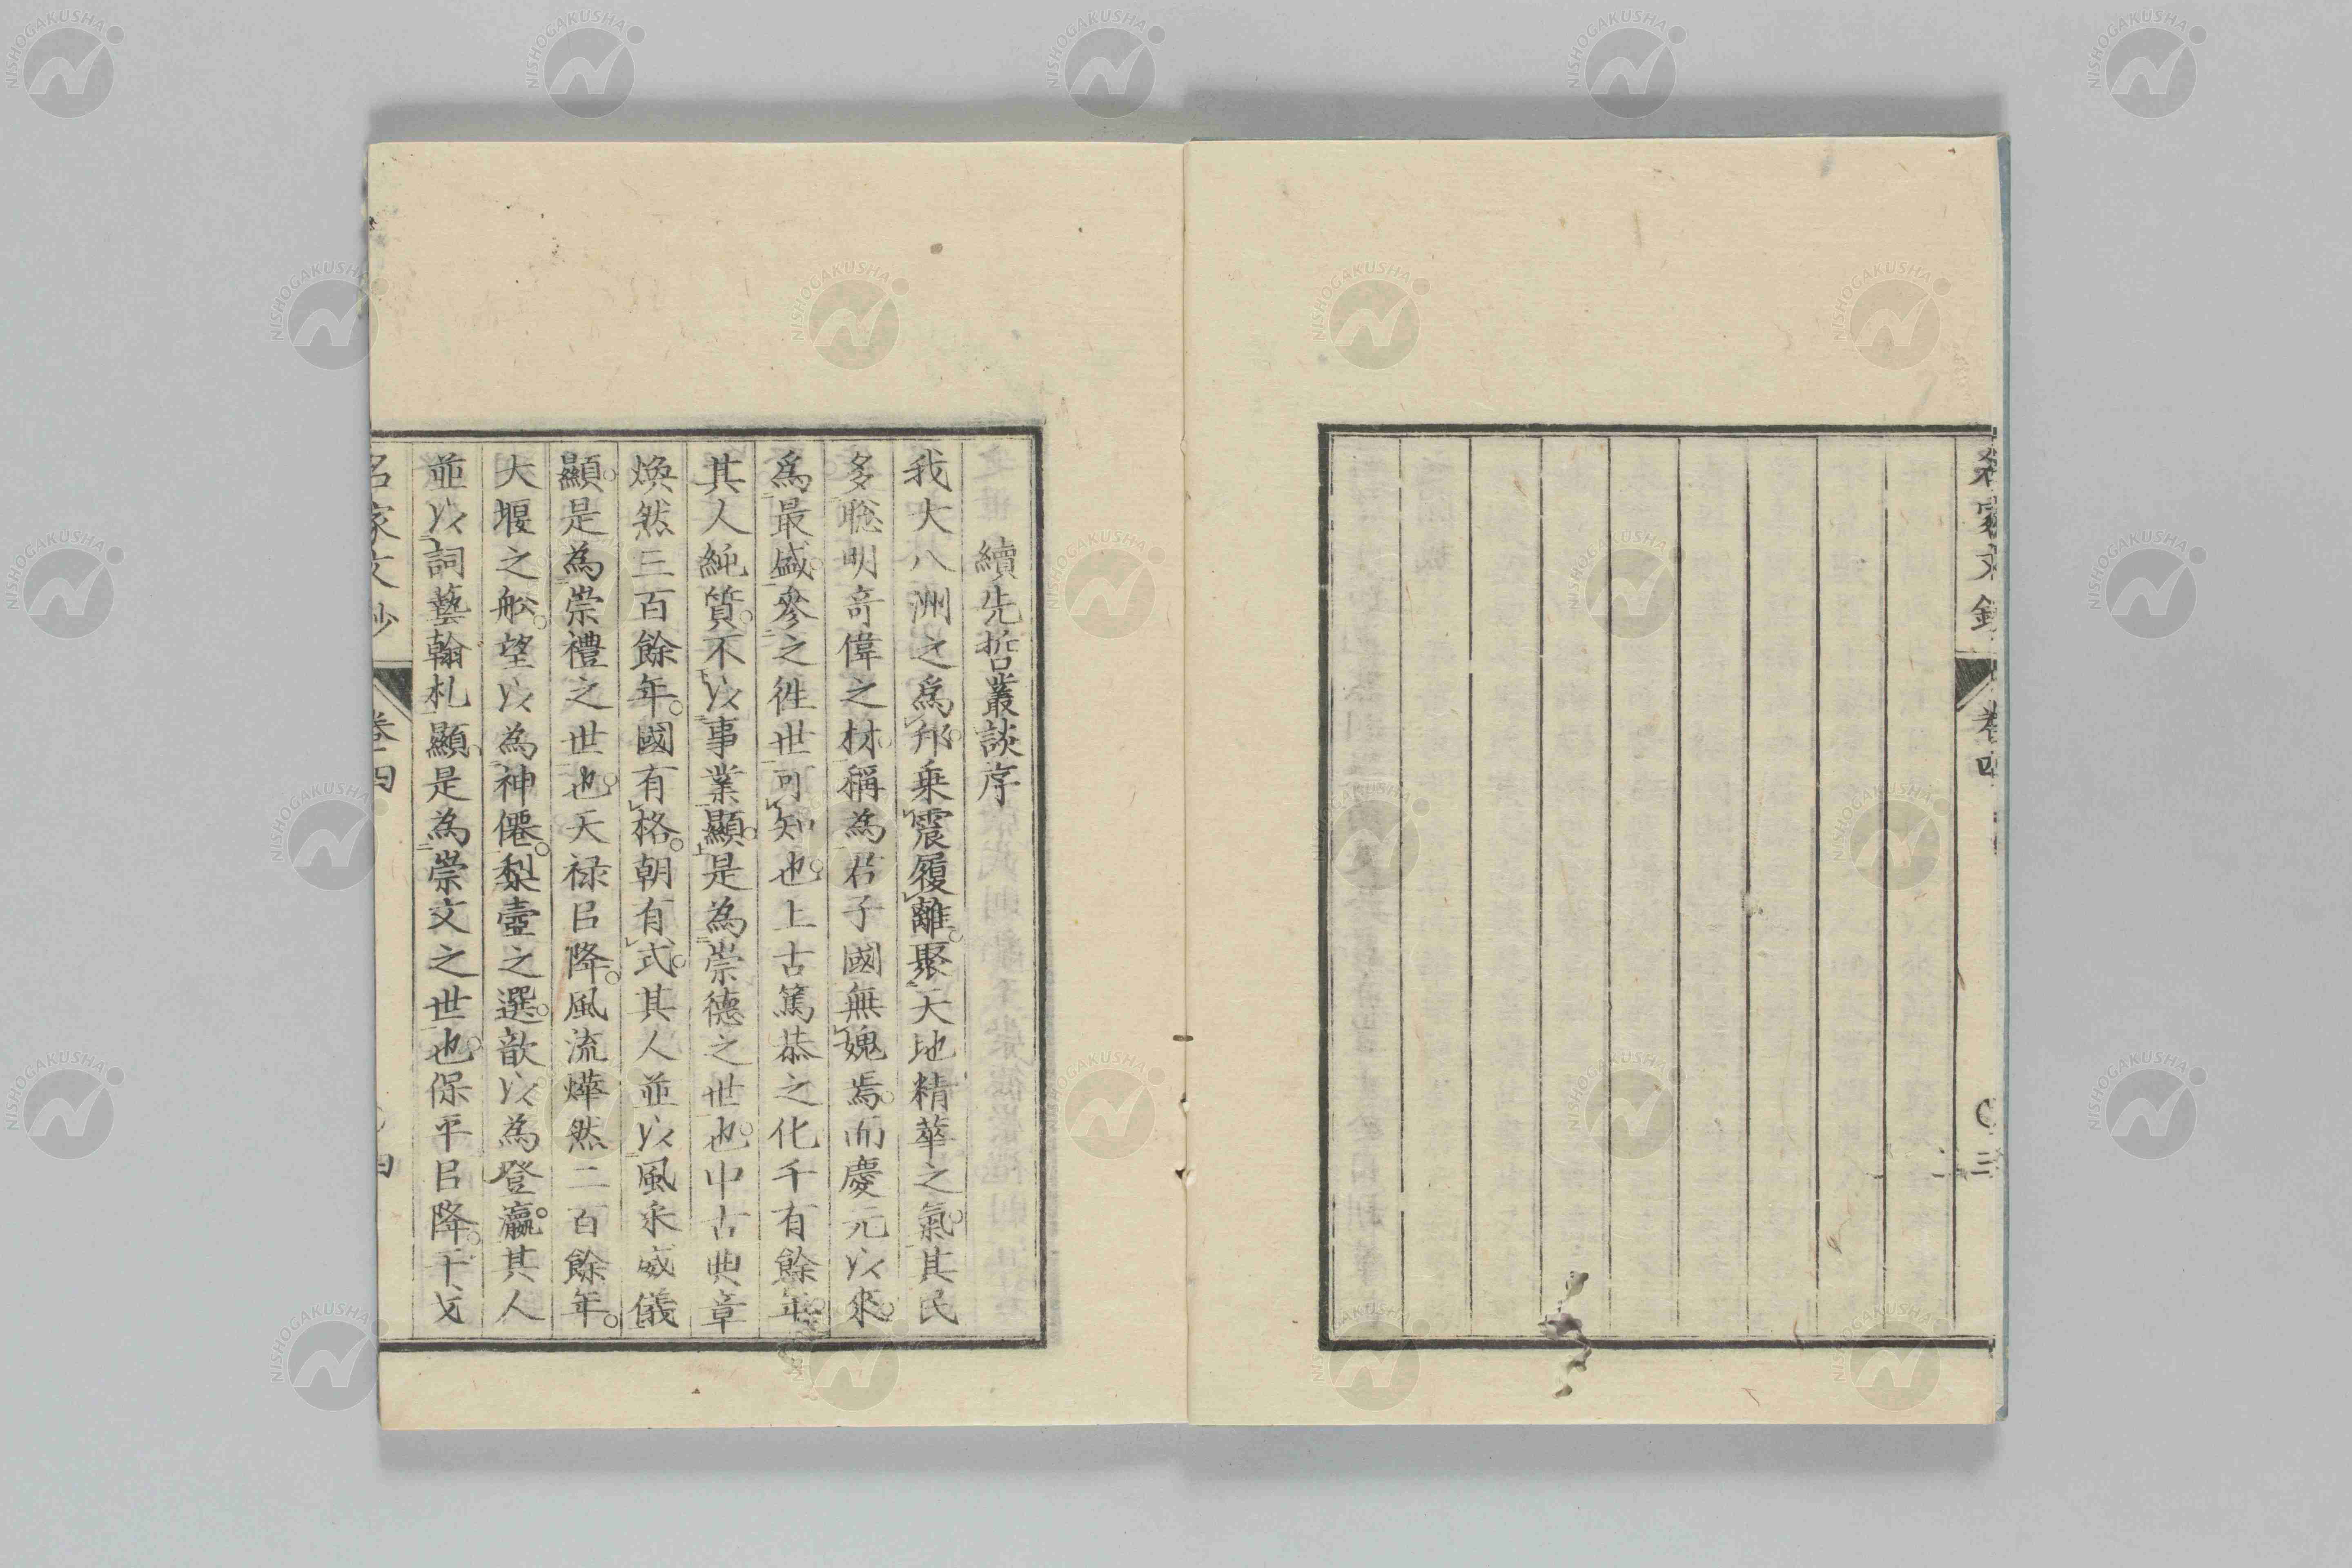 名家文鈔
卷四
〇三
續先哲叢談序
我大八洲之爲邦。乗震履離。聚天地精華之氣。其民
多聡明竒偉之材。稱為君子國無媿焉。而慶元以來。
爲最盛。參之徃世可知也。上古篤恭之化千有餘年。
其人純質。不以事業顯。是為崇德之世也。中古典章
煥然三百餘年。國有格。朝有式。其人並以風采威儀
顯。是為崇禮之世也。天禄㠯降。風流燁然二百餘年。
大堰之舩。望以為神僊。梨壺之選。歆以為登瀛。其人
並以詞藝翰札顯。是為崇文之世也。保平㠯降。干戈
名家文鈔
卷四
四
NISHOGAKUSHA